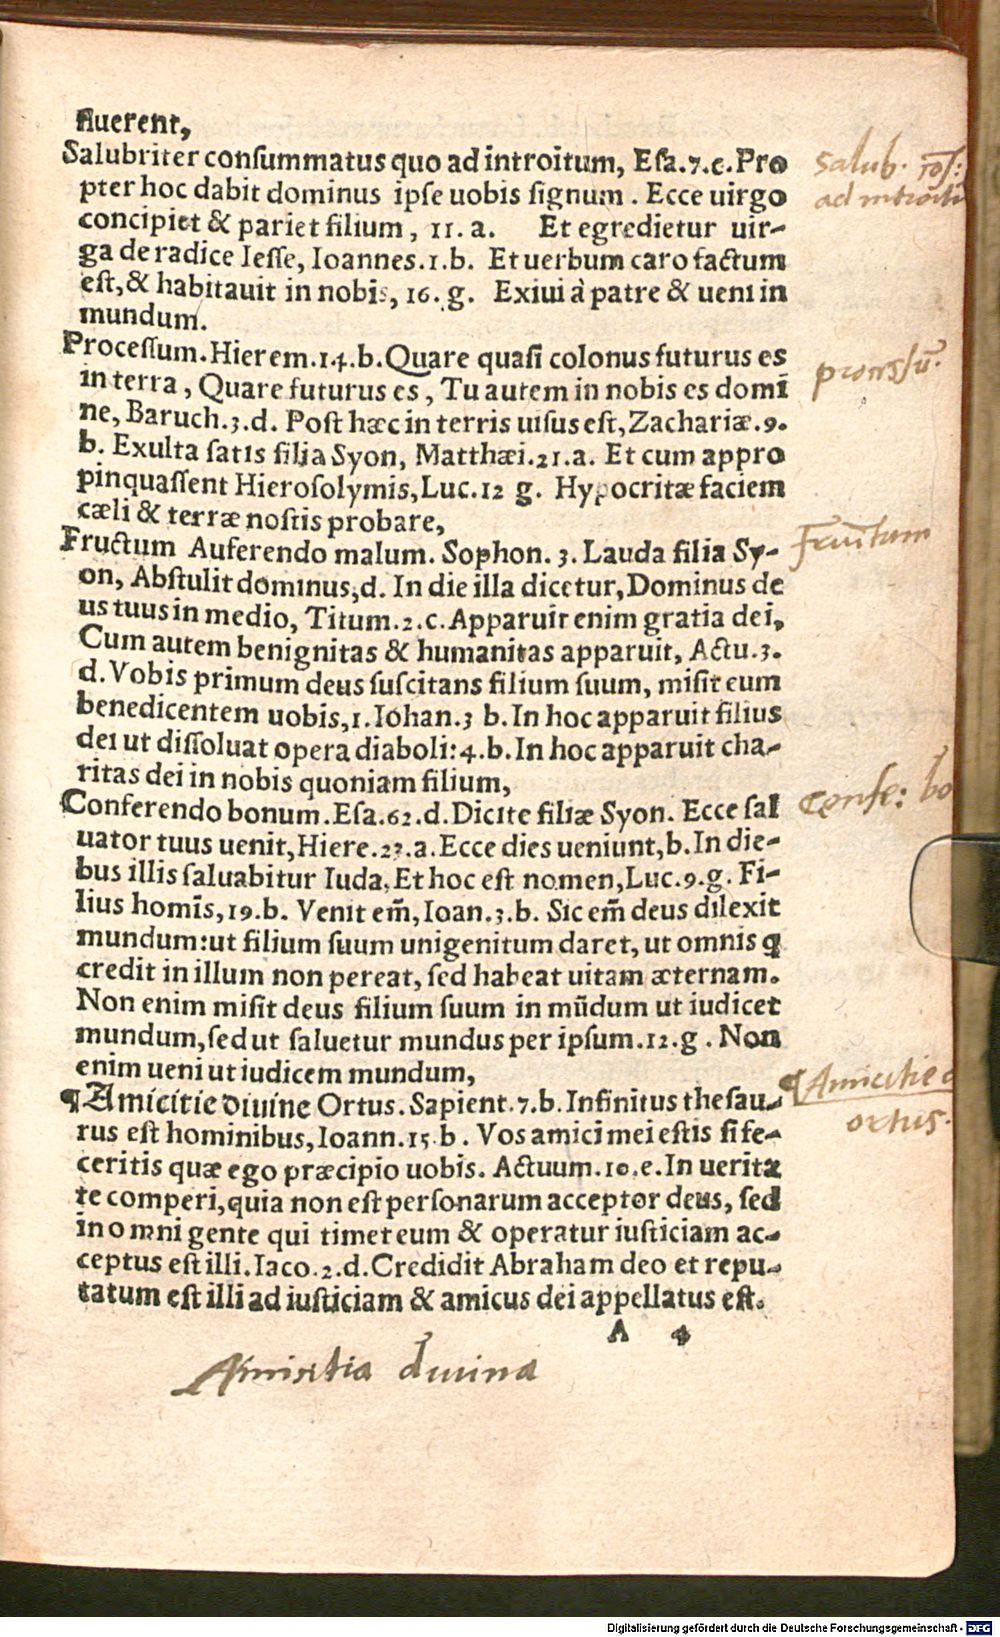 fluerent,
Salubriter consummatus quo ad introitum, Esa.7.c.Pro
pter hoc dabit dominus ipse uobis signum. Ecce uirgo
concipiet & pariet filium, 11. a. Et egredietur uir-
ga de radice Iesse, Ioannes.1.b. Et uerbum caro factum
est,& habitauit in nobis, 16. g. Exiui à patre & ueni in
mundum.
Processum.Hierem.14.b.Quare quasi colonus futurus es
in terra, Quare futurus es, Tu autem in nobis es domi
ne, Baruch.3.d. Post hæc in terris uisus est, Zachariæ.9.
b. Exulta satis filia Syon, Matthæi.21.a. Et cum appro
pinquassent Hierosolymis, Luc.12 g. Hypocritæ faciem
cæli & terræ nostis probare,
Fructum Auferendo malum. Sophon. 3. Lauda filia Sy-
on, Abstulit dominus,d. In die illa dicetur, Dominus de
us tuus in medio, Titum.2.c.Apparuit enim gratia dei,
Cum autem benignitas & humanitas apparuit, Actu.3.
d.Vobis primum deus suscitans filium suum, misit eum
benedicentem uobis,1.Iohan.3 b.In hoc apparuit filius
dei ut dissoluat opera diaboli:4.b.In hoc apparuit cha-
ritas dei in nobis quoniam filium,
Conferendo bonum.Esa.62.d.Dicite filiæ Syon. Ecce sal
uator tuus uenit,Hiere.23.a.Ecce dies ueniunt,b.In die-
bus illis saluabitur Iuda, Et hoc est nomen,Luc.9.g. Fi-
lius homīs,19.b. Venit em̄,Ioan.3.b. Sic em̄ deus dilexit
mundum:ut filium suum unigenitum daret, ut omnis q
credit in illum non pereat, sed habeat uitam æternam.
Non enim misit deus filium suum in mūdum ut iudicet
mundum, sed ut saluetur mundus per ipsum.12.g. Non
enim ueni ut iudicem mundum,
¶ Amicitie diuine Ortus. Sapient.7.b. Infinitus thesau-
rus est hominibus, Ioann.15.b. Vos amici mei estis si fe-
ceritis quæ ego præcipio uobis. Actuum.10.e.In uerita
te comperi,quia non est personarum acceptor deus, sed
in omni gente qui timet eum & operatur iusticiam ac-
ceptus est illi. Iaco.2.d.Credidit Abraham deo et repu-
tatum est illi ad iusticiam & amicus dei appellatus est.
A 4
Amicitia diuina
Salub.
ad introitū
processū.
Fructum
Confe: bo
¶ Amicitie d
ortus.
Digitalisierung gefördert durch die Deutsche Forschungsgemeinschaft - DFG